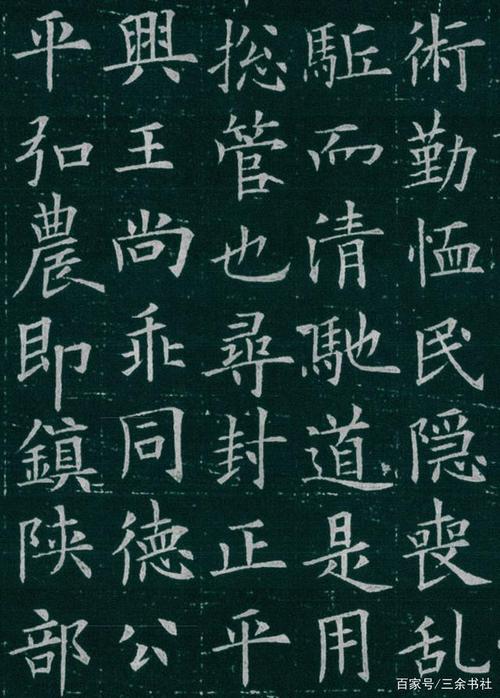 術勤恤民隠喪乱
駈而清馳道是用
捴管也尋封正平
興王尚乖同德公
平弘農即鎮陝部
百家号/三余书社